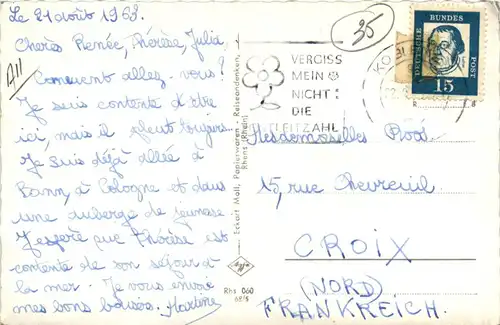 Le 21 août 1963.
Chères Renée, Thérèse, Julia,
All
Comment allez-vous?
Je suis contente d'être
ici, mais il pleut toujours.
Je suis déjà allée à
Bonn, à Cologne et dans
une auberge de jeunesse
J'espère que Thérèse est
contente de son séjour à
la mer. Je vous envoie
mes bons baisers. Martine
Eckart Moll, Papierwaren - Reiseandenken,
Rhens (Rhein)
Rhs 060
68/5
35
VERGISS
MEIN
NICHT
DIE
LEITZAHL
KO
DEUTSCHE BUNDESPOST
15
Mesdemoiselles
15, rue Chevreuil
CROIX
(NORD)
FRANKREICH.